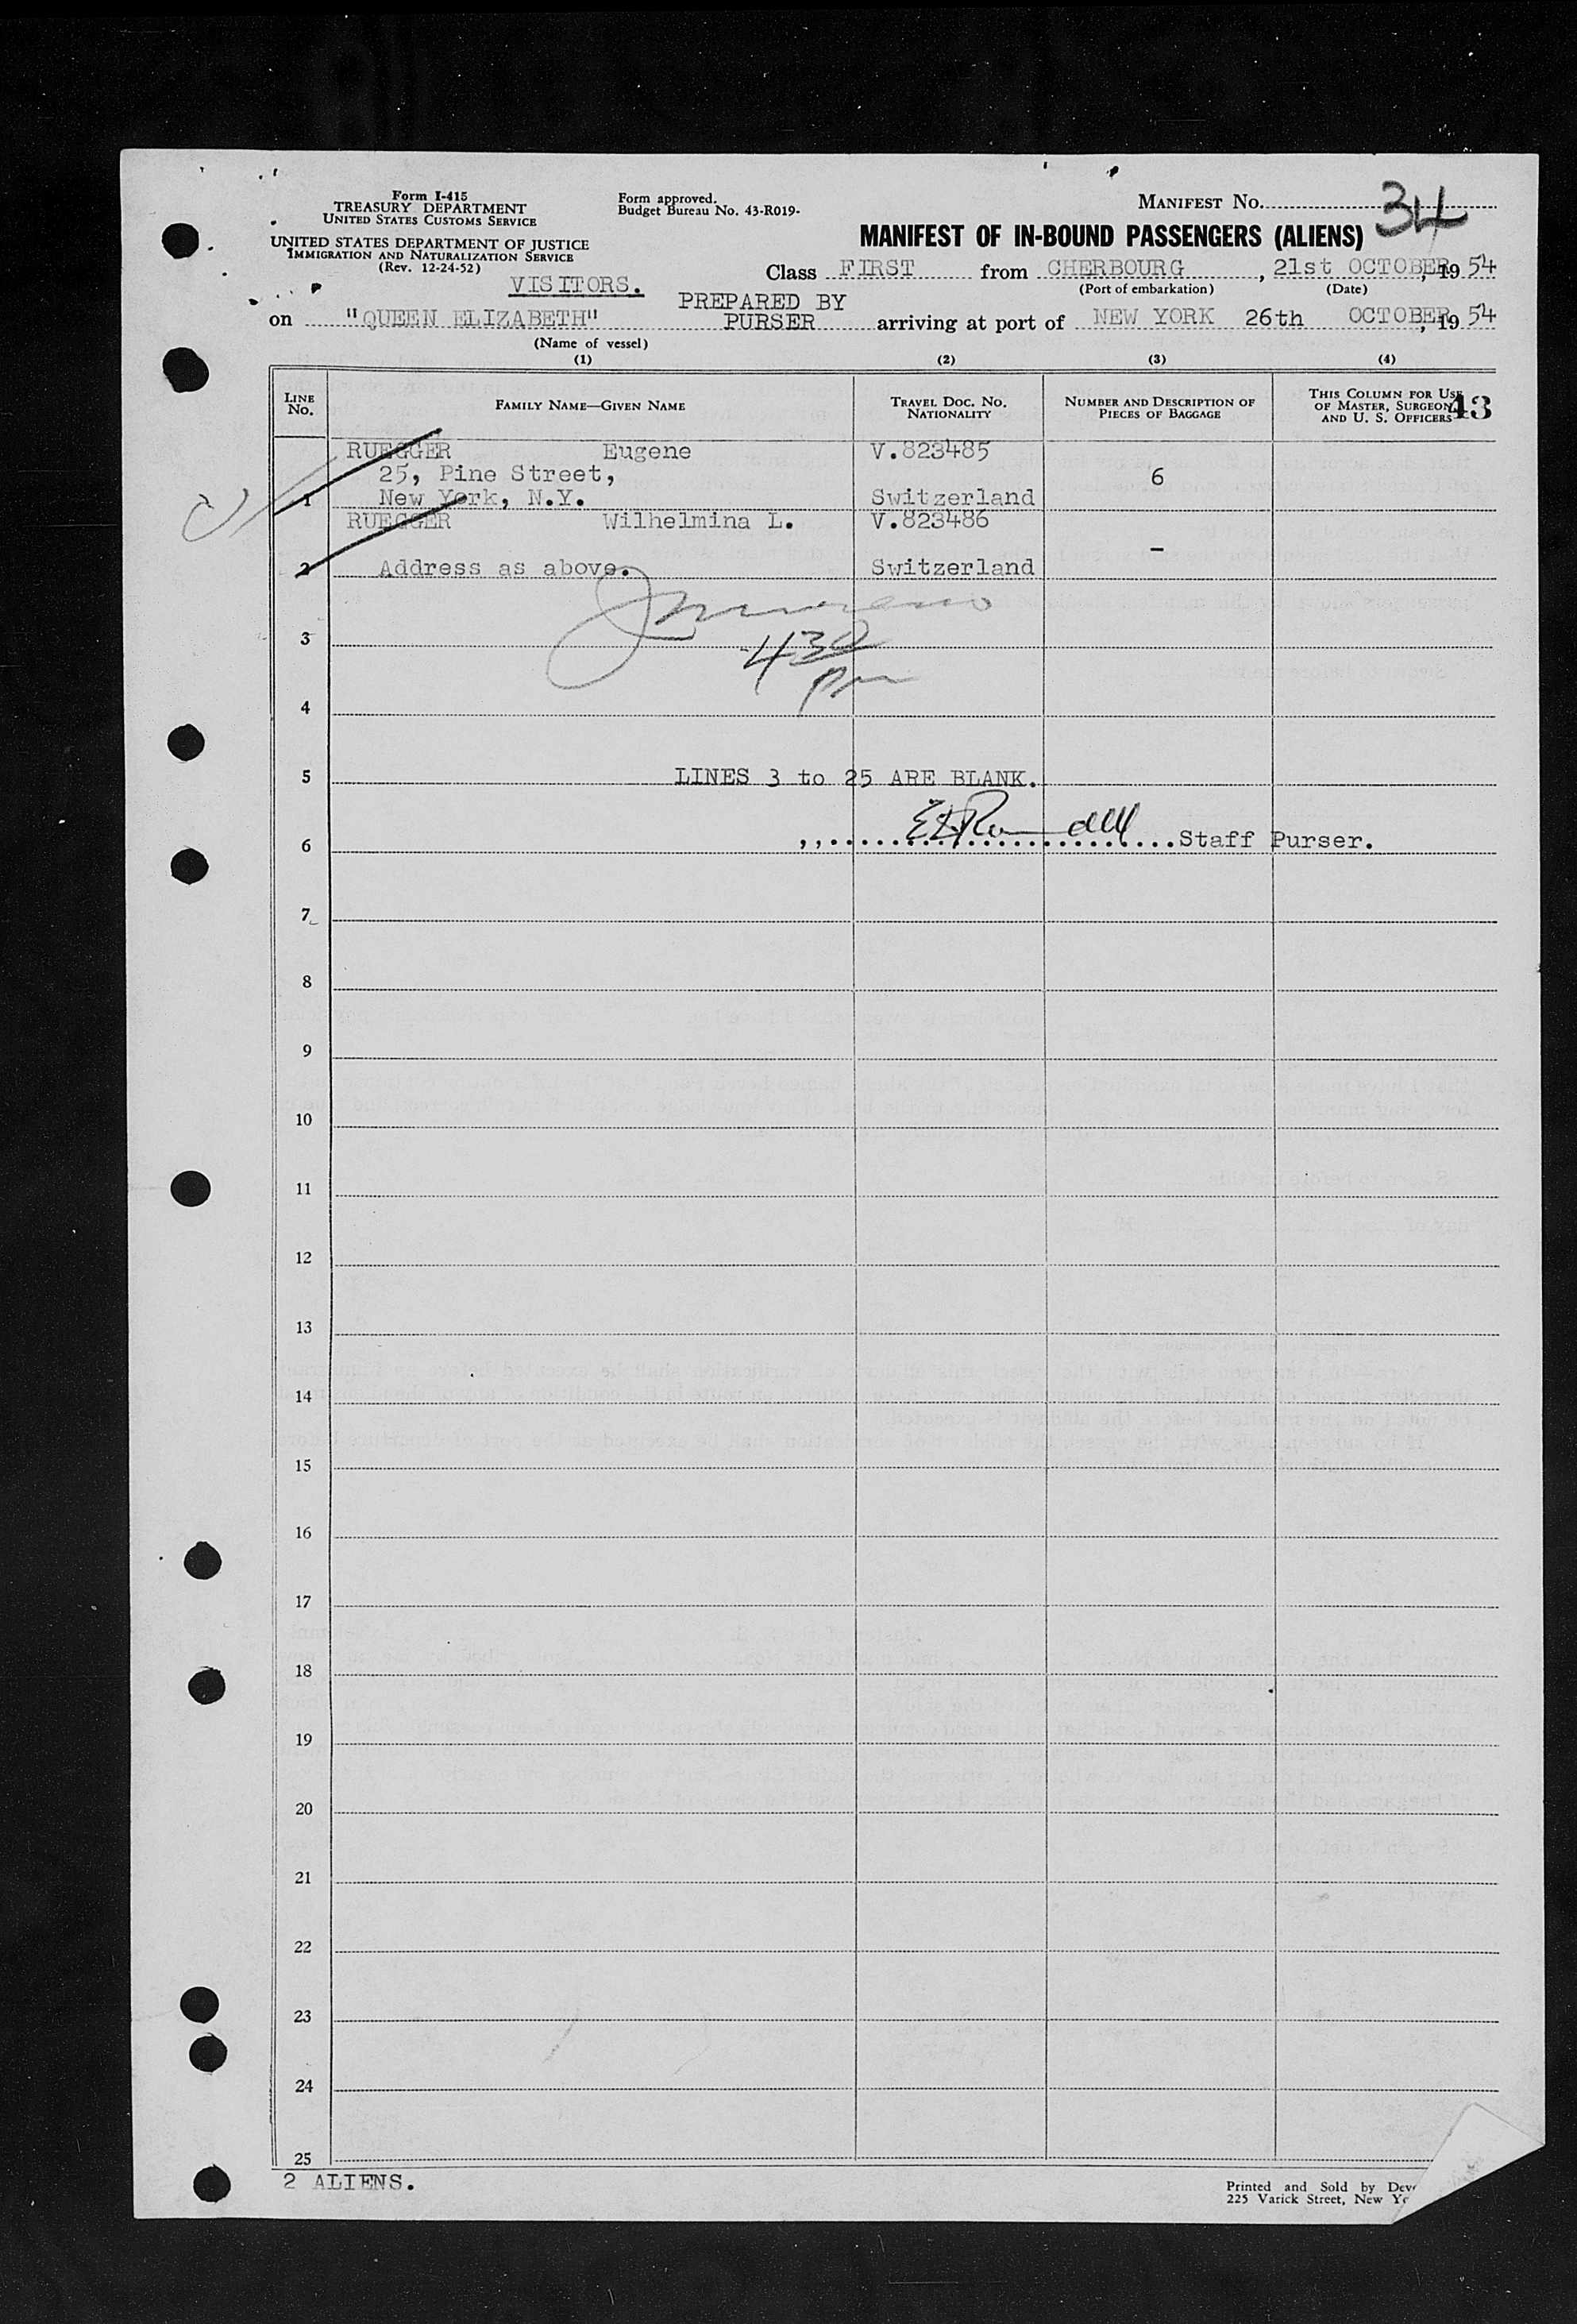 Form I-415
TREASURY DEPARTMENT
UNITED STATES CUSTOMS SERVICE
UNITED STATES DEPARTMENT OF JUSTICE
IMMIGRATION AND NATURALIZATION SERVICE
(Rev. 12-24-52)
Form approved.
Budget Bureau No. 43-R019-
MANIFEST No. 34
MANIFEST OF IN-BOUND PASSENGERS (ALIENS)
Class FIRST from CHERBOURG, 21st OCTOBER, 19 54
(Port of embarkation) (Date)
VISITORS.
PREPARED BY
on "QUEEN ELIZABETH" PURSER arriving at port of NEW YORK 26th OCTOBER, 19 54
(Name of vessel)
(1) (2) (3) (4)
LINE No. FAMILY NAME—GIVEN NAME TRAVEL DOC. No. NATIONALITY NUMBER AND DESCRIPTION OF PIECES OF BAGGAGE THIS COLUMN FOR USE OF MASTER, SURGEON, AND U. S. OFFICERS 43
RUEGGER Eugene V.823485
25, Pine Street, 6
1 New York, N.Y. Switzerland
RUEGGER Wilhelmina L. V.823486
-
2 Address as above. Switzerland
3
430
pm
4
5 LINES 3 to 25 ARE BLANK.
6 ,,......................Staff Purser.
7
8
9
10
11
12
13
14
15
16
17
18
19
20
21
22
23
24
25
2 ALIENS.
Printed and Sold by
225 Varick Street, New